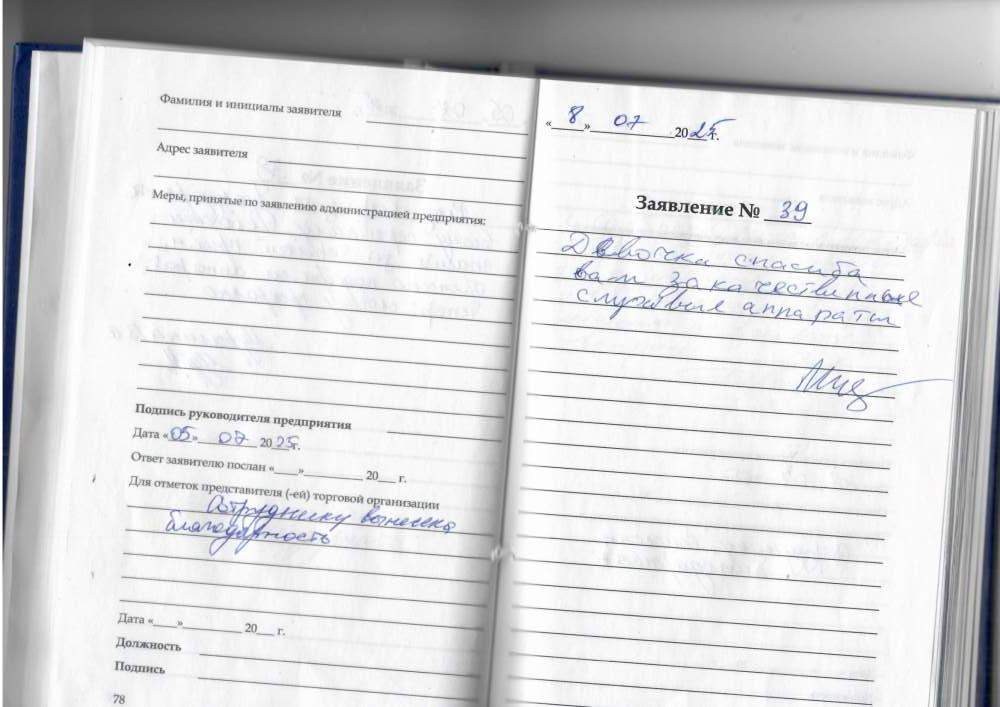 Фамилия и инициалы заявителя
Адрес заявителя
Меры, принятые по заявлению администрацией предприятия:
Подпись руководителя предприятия
Дата «05» 07 2025г.
Ответ заявителю послан «____»__________ 20___ г.
Для отметок представителя (-ей) торговой организации
Сотруднику вынесена
благодарность
Дата «____»__________ 20___ г.
Должность
Подпись
78
«8» 07 2025г.
Заявление № 39
Девочки спасиба
вам за качественные
слуховые аппараты